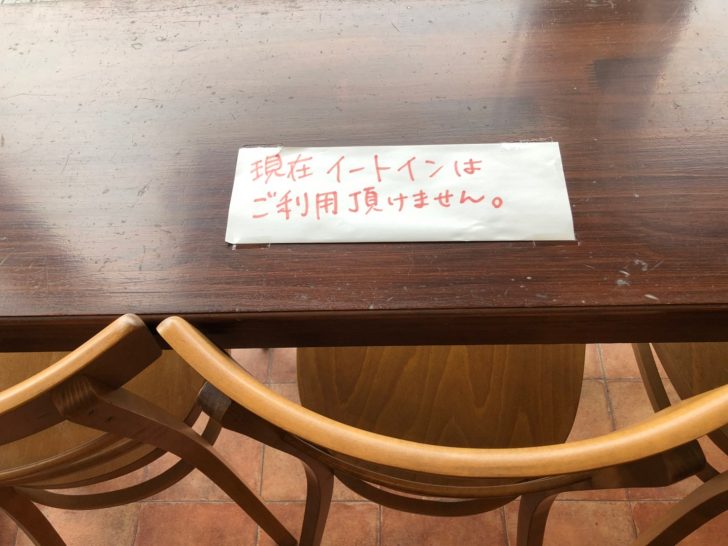 現在 イートインは
ご利用頂けません。